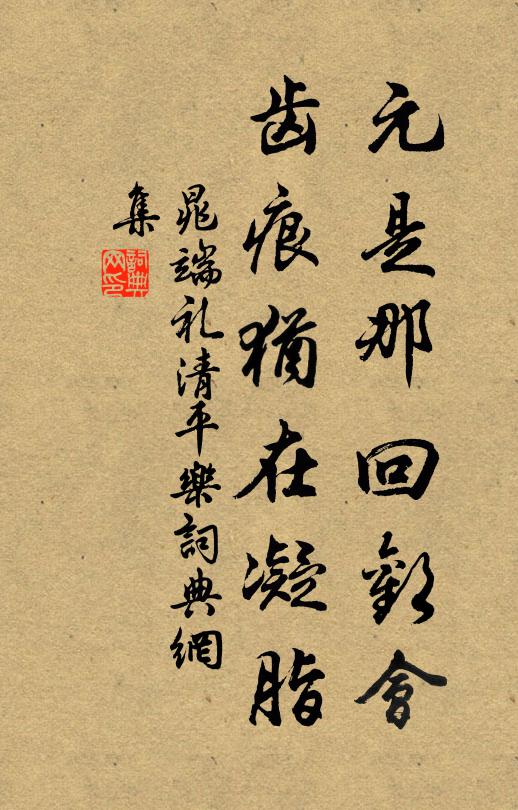 元是那回歡會
齿痕猶在凝脂
晁端礼清平樂詞典網
集
詞典網印